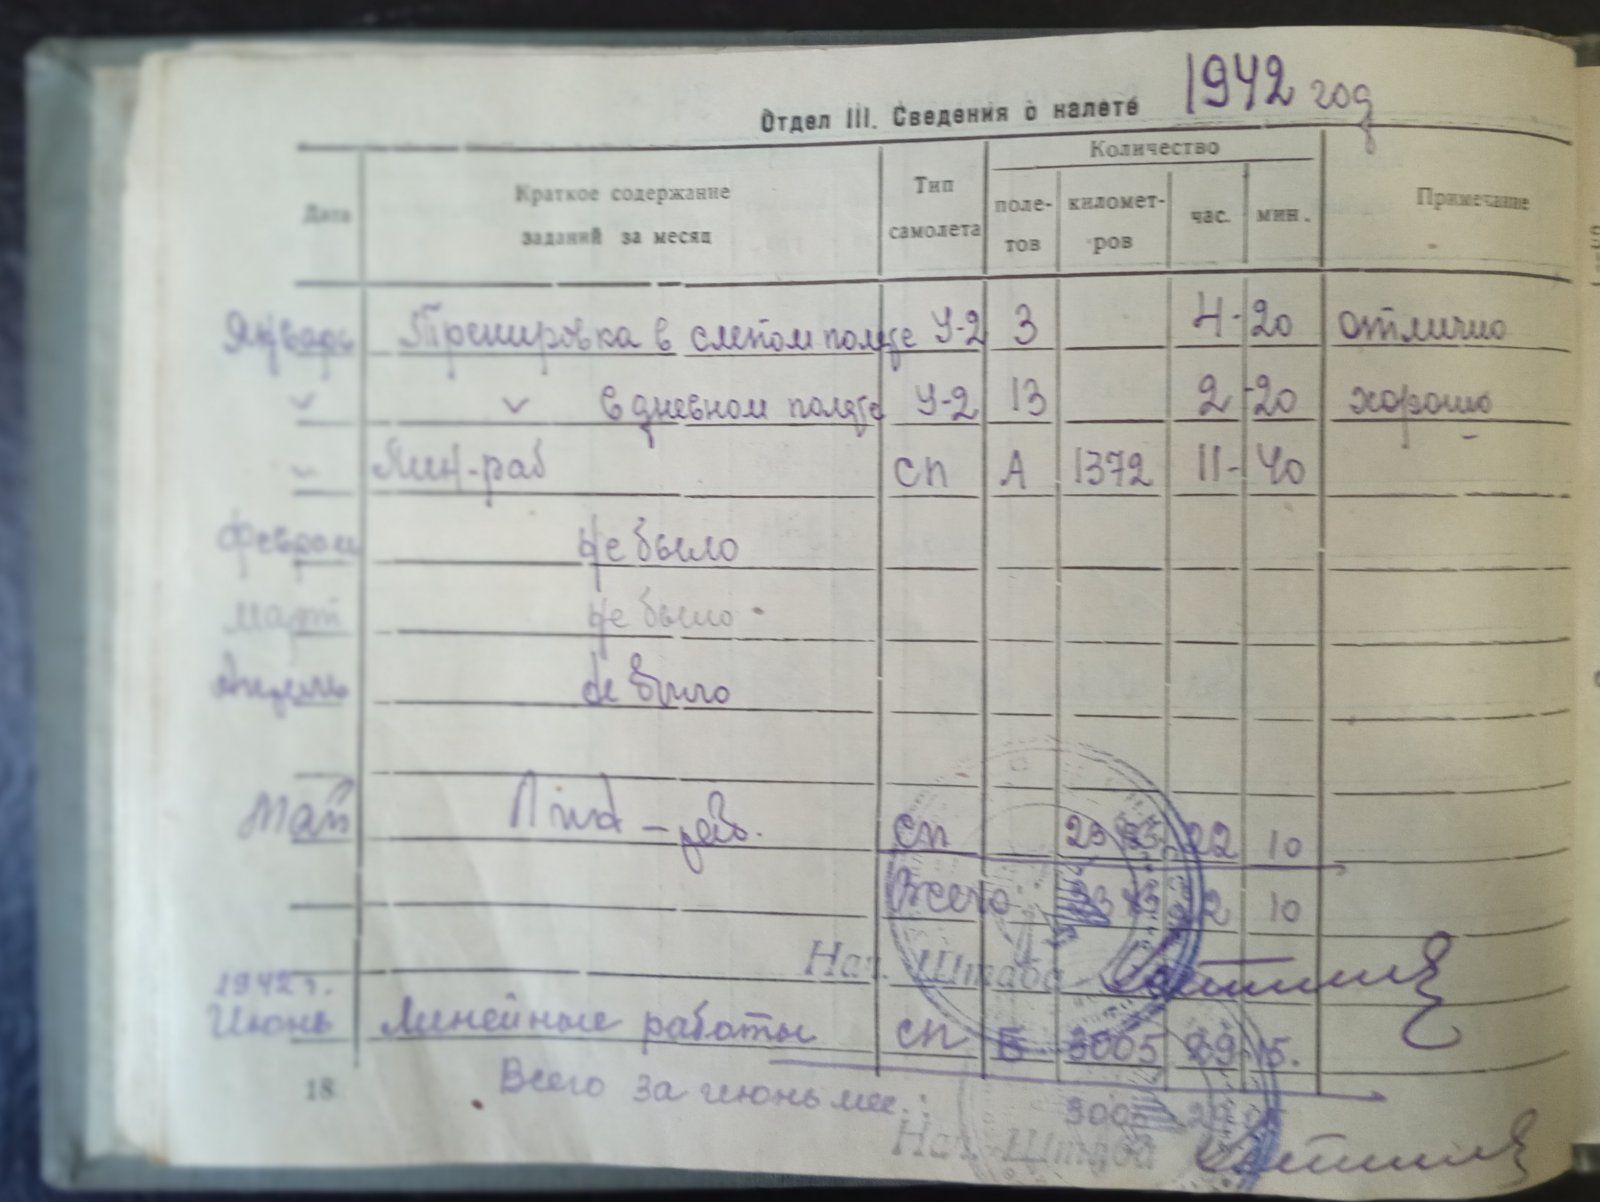 Отдел III. Сведения о налете 1942 год
Дата Краткое содержание заданий за месяц Тип самолета Количество Примечание
поле-тов километ-ров час. мин.
Январь Тренировка в слепом полете У-2 3 4-20 отлично
" " в дневном полете У-2 13 2-20 хорошо
" Лин-раб СП А 1372 11-40
Февраль Не было
Март Не было
Апрель Не было
Май Лин-раб. СП 22 10
Всего 22 10
Нач. Штаба
1942 г.
Июнь Линейные работы СП 3005 29 15.
18 Всего за июнь мес.:
Нач. Штаба